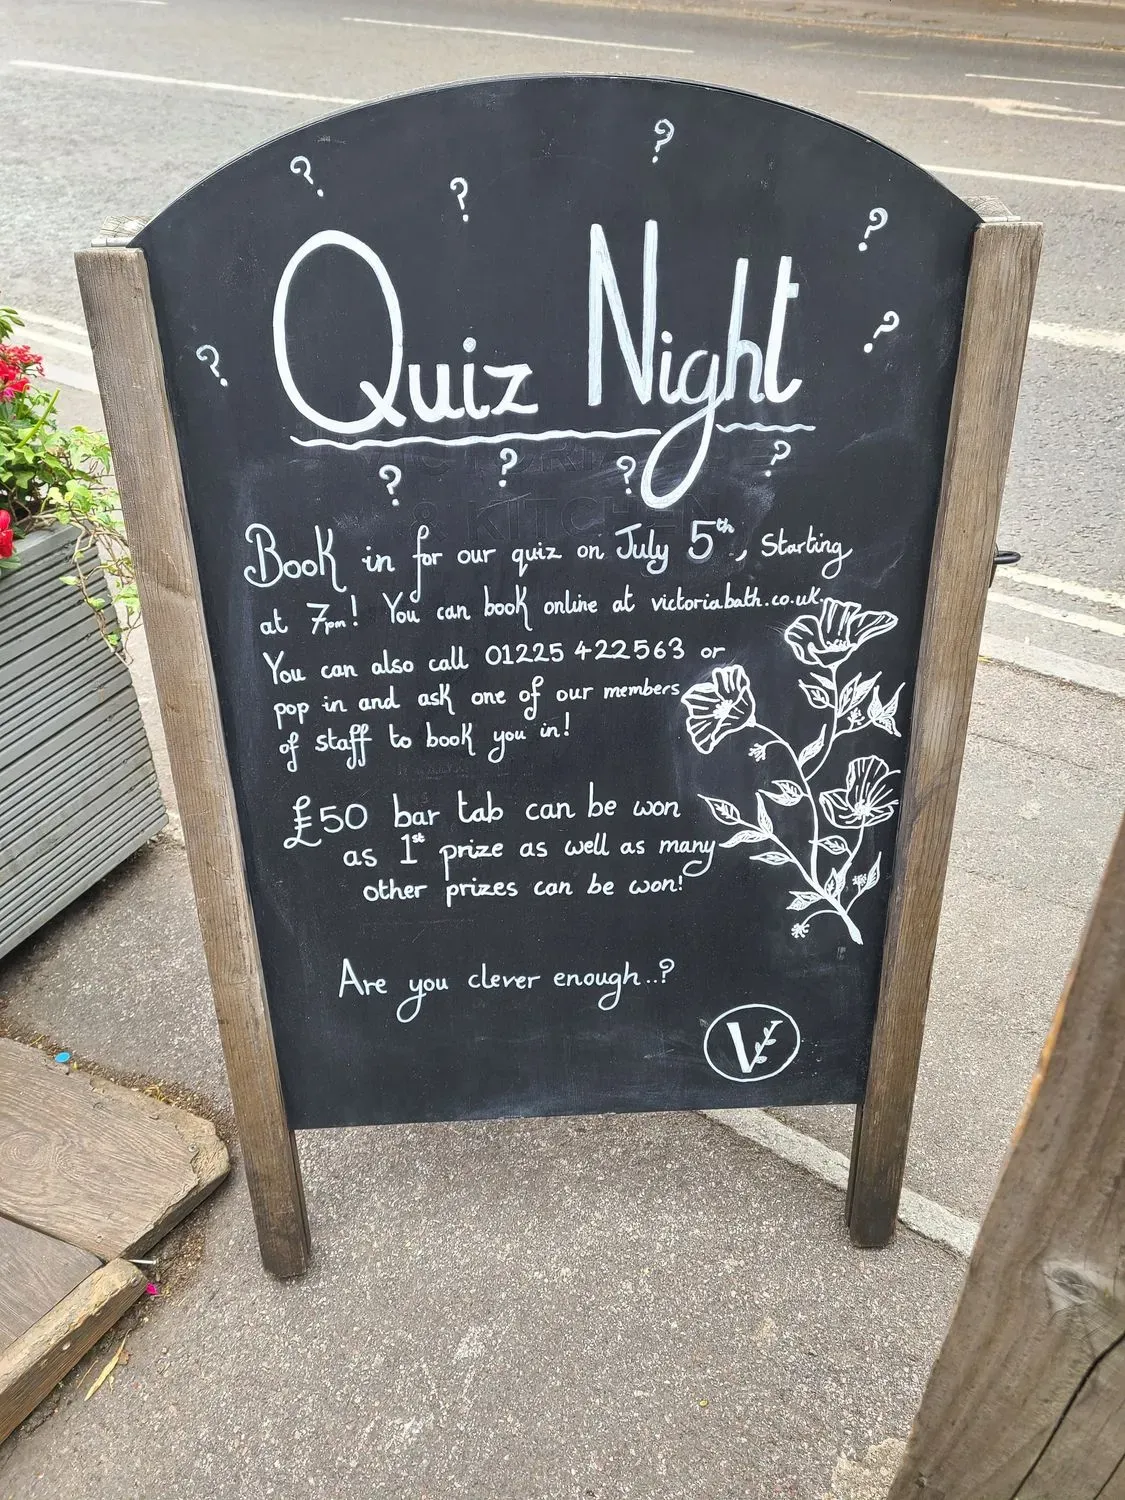 ? ? ? ? ? ?
Quiz Night
? ? ? ?
Book in for our quiz on July 5th, Starting
at 7pm! You can book online at victoriabath.co.uk.
You can also call 01225 422563 or
pop in and ask one of our members
of staff to book you in!
£50 bar tab can be won
as 1st prize as well as many
other prizes can be won!
Are you clever enough..?
V